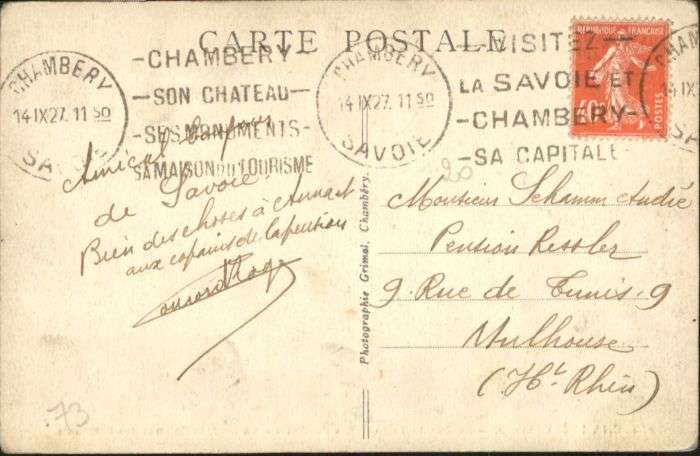 CARTE POSTALE
CHAMBERY
SAVOIE
14 IX27. 11 50
-CHAMBERY-
-SON CHATEAU-
-SES MONUMENTS-
SA MAISON DU TOURISME
CHAMBERY
14 IX27. 11 50
SAVOIE
-VISITEZ-
LA SAVOIE ET
-CHAMBERY-
-SA CAPITALE
REPUBLIQUE FRANÇAISE
POSTES
CHAM
14 IX
S
20
Amical bonjour
de Savoie.
Bien des choses à Anna et
aux copains de la pension
Photographie Grimal, Chambéry.
Monsieur Schamm André
Pension Ressler
9. Rue de Tunis. 9
Mulhouse
(Ht Rhin)
73